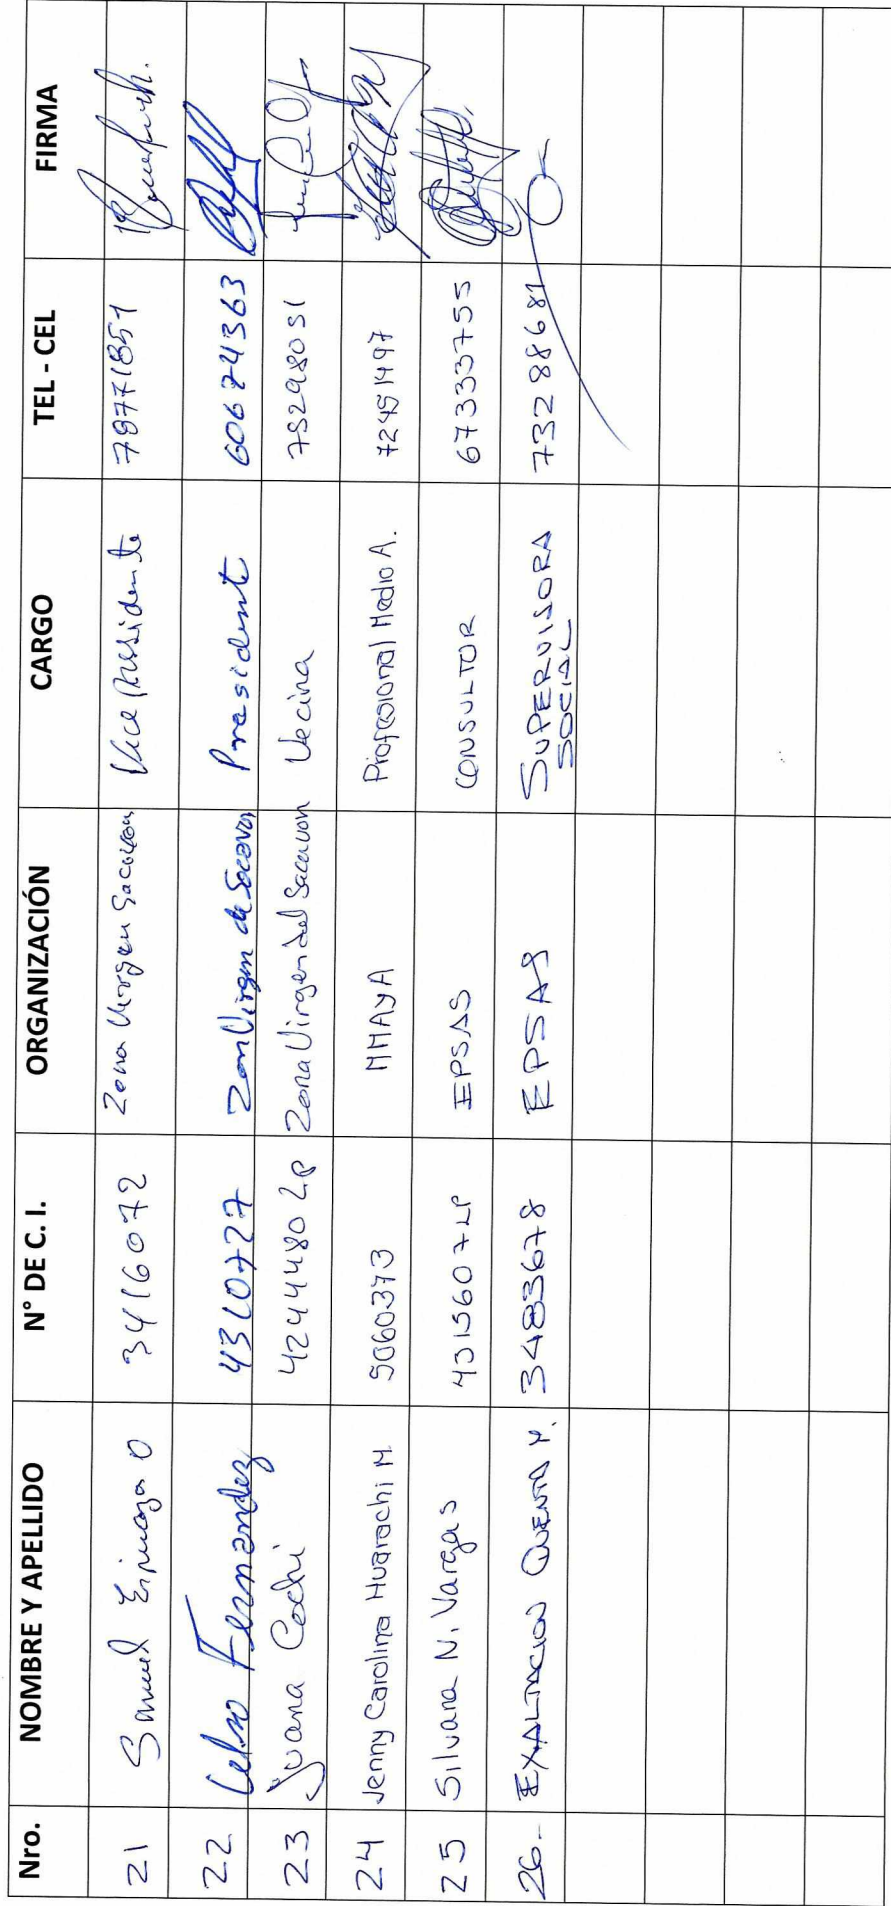 Nro. NOMBRE Y APELLIDO N° DE C. I. ORGANIZACIÓN CARGO TEL - CEL FIRMA
21 Samuel O 3416072 Zona Virgen Socavon Vice presidente 78771851
22 Celso Fernandez 4310727 Zon Virgen de Socavon President 60674363
23 Juana Cochi 4244480 LP Zona Virgen del Sacavon Vecina 75298051
24 Jenny Carolina Huarachi M 5060373 MMAyA Profesional Medio A. 72451497
25 Silvana N. Vargas 4315607 LP EPSAS CONSULTOR 67333755
26.- EXALTACION QUENTA M. 3483678 EPSAS SUPERVISORA 73288681
SOCIAL